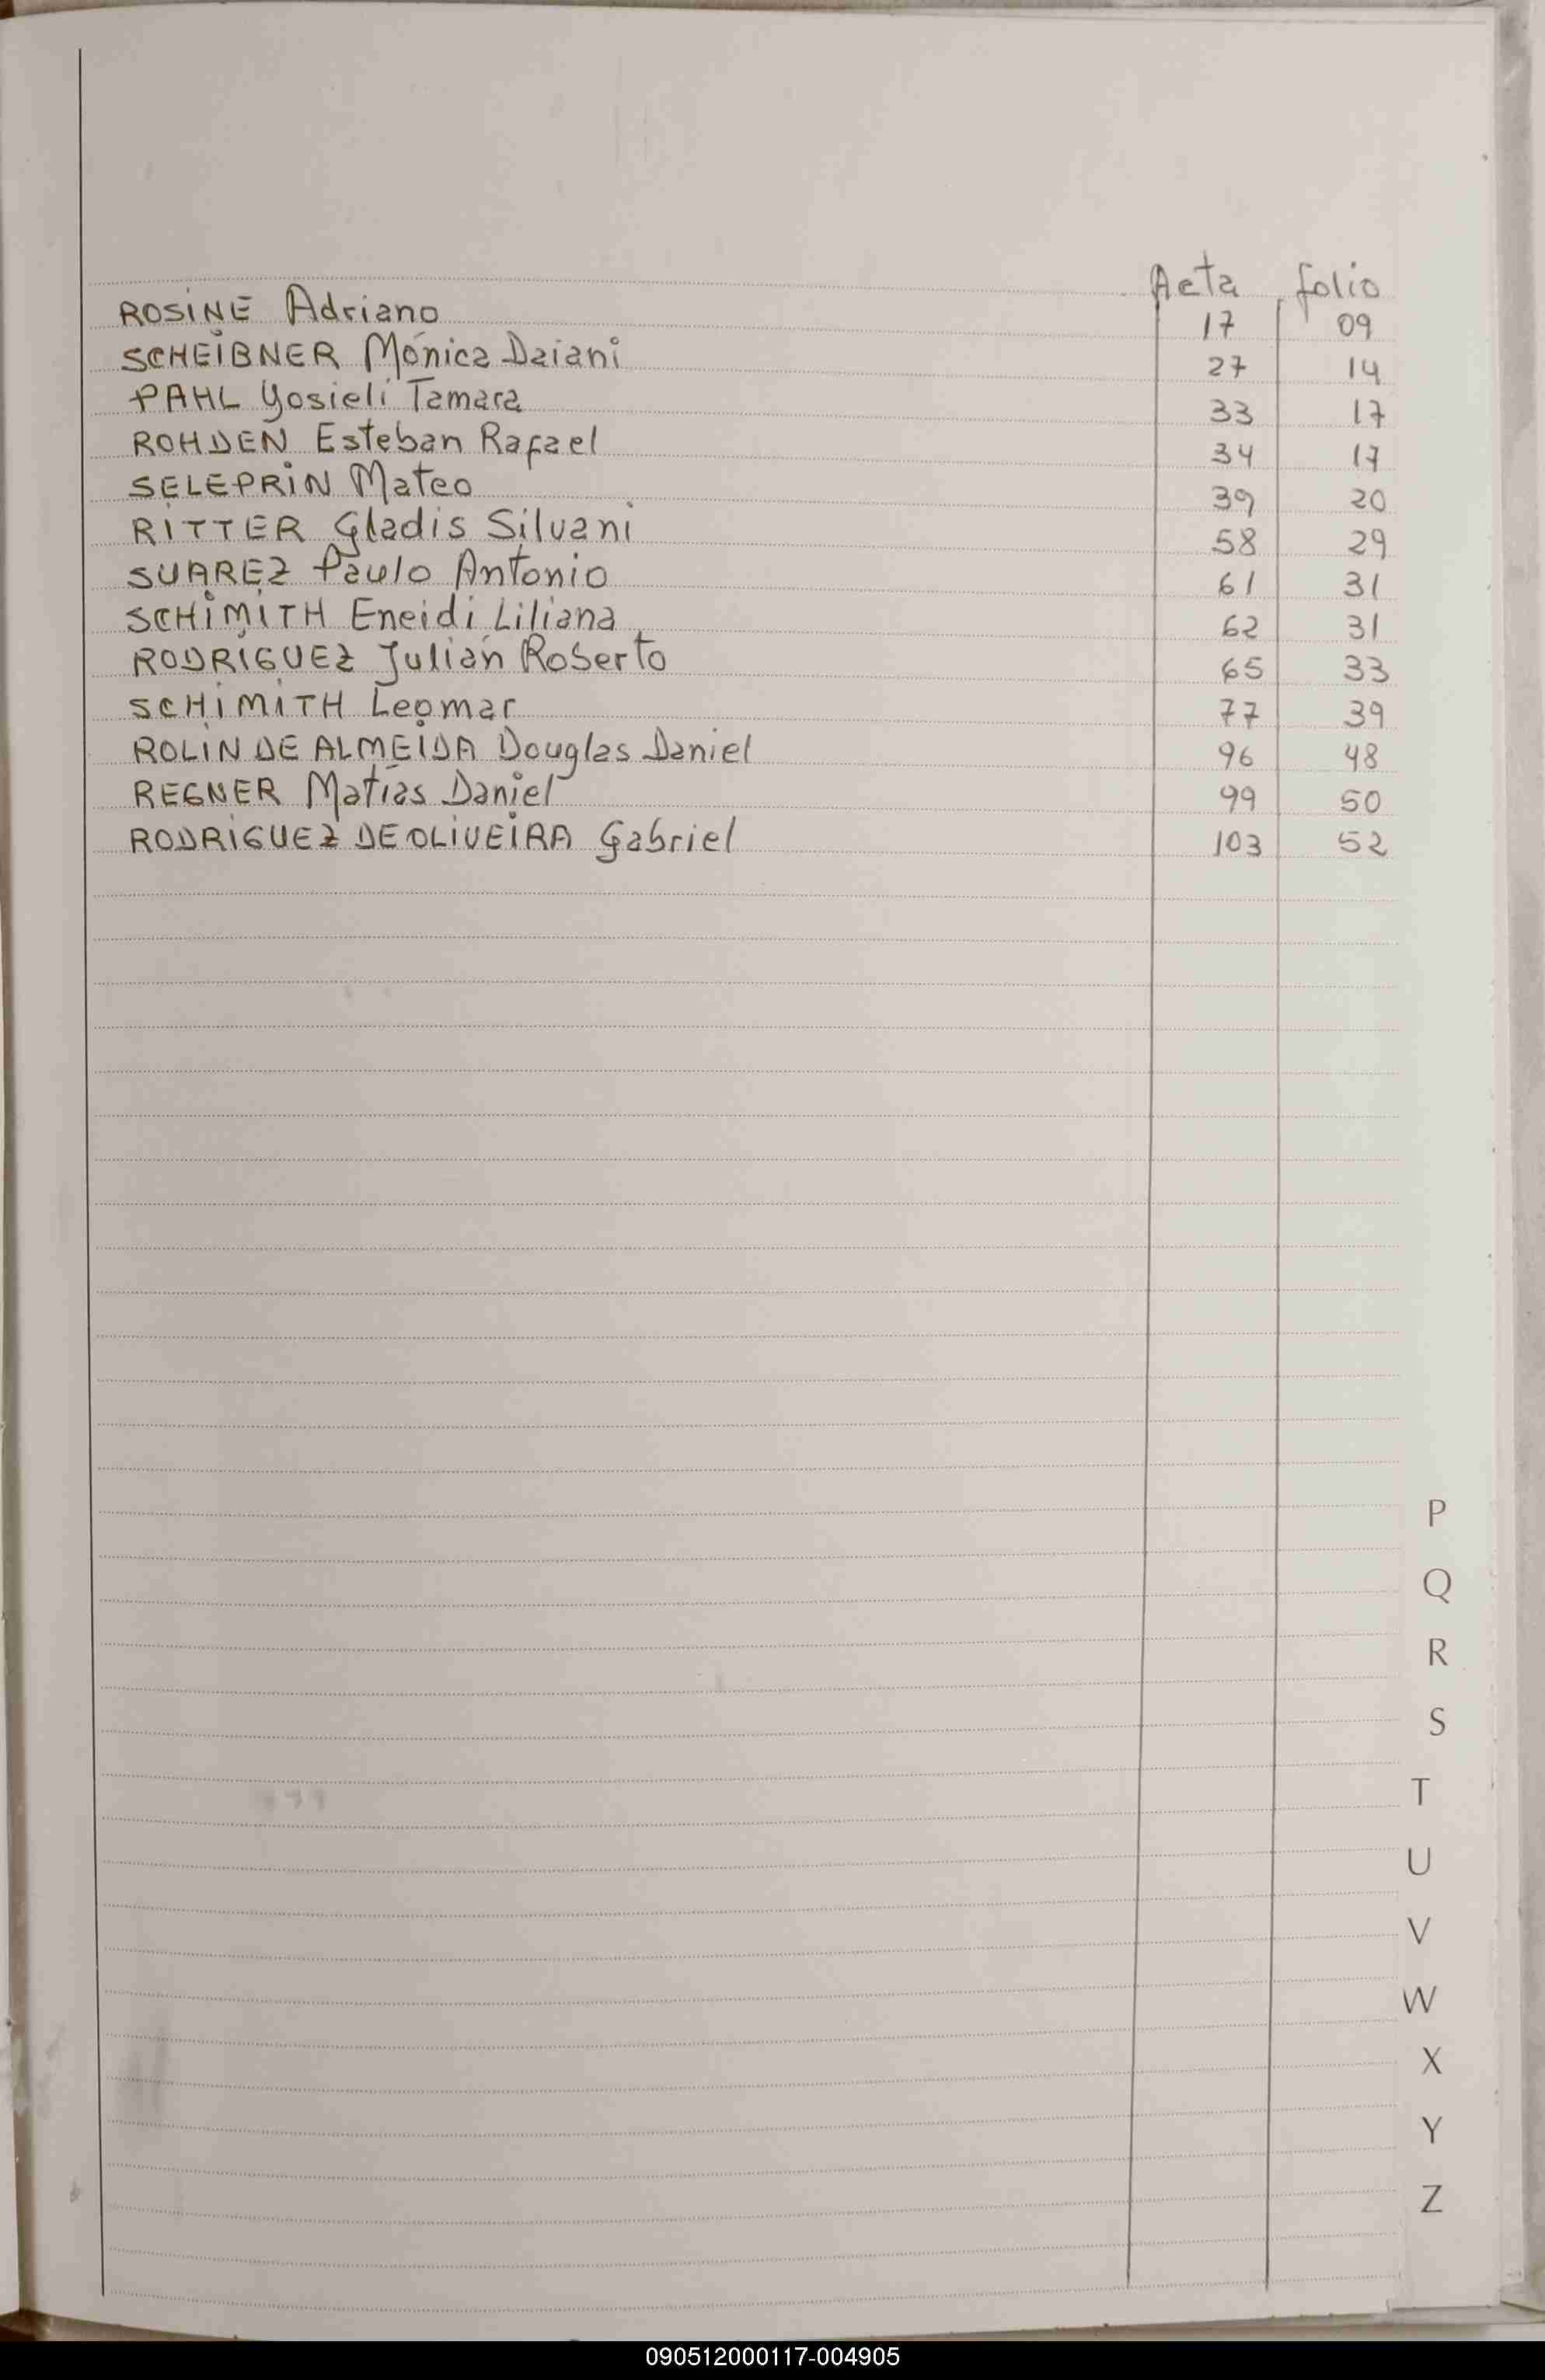 Acta folio
ROSINE Adriano 17 09
SCHEIBNER Mónica Daiani 27 14
PAHL Yosieli Tamara 33 17
ROHDEN Esteban Rafael 34 17
SELEPRIN Mateo 39 20
RITTER Gladis Silvani 58 29
SUAREZ Paulo Antonio 61 31
SCHIMITH Eneidi Liliana 62 31
RODRIGUEZ Julián Roberto 65 33
SCHIMITH Leomar 77 39
ROLIN DE ALMEIDA Douglas Daniel 96 48
REGNER Matías Daniel 99 50
RODRIGUEZ DE OLIVEIRA Gabriel 103 52
P
Q
R
S
T
U
V
W
X
Y
Z
090512000117-004905